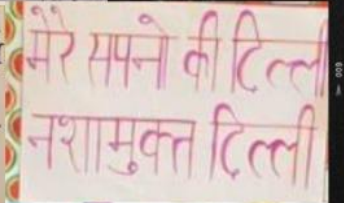 मेरे सपनो की दिल्ली
नशामुक्त दिल्ली